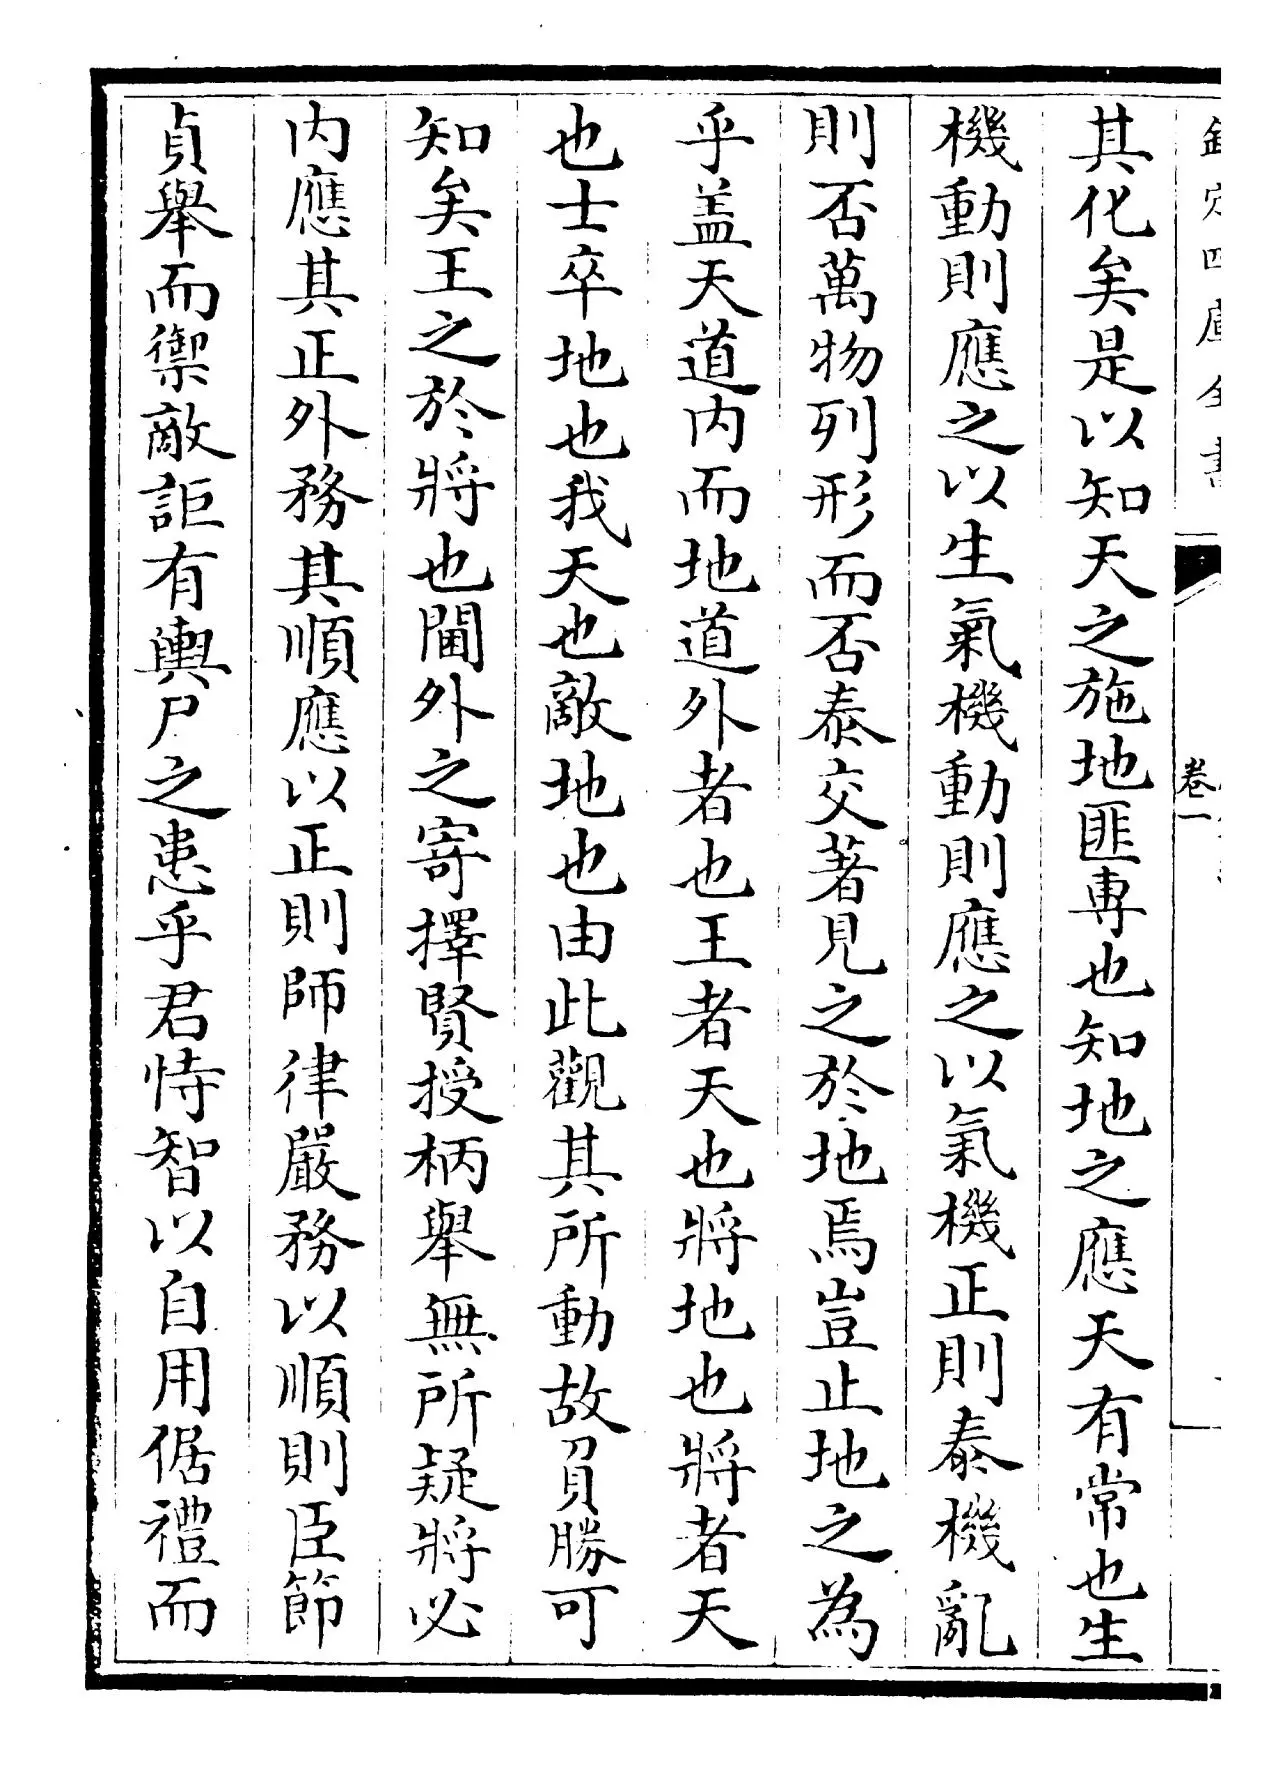 欽定四庫全書
卷一
其化矣是以知天之施地匪專也知地之應天有常也生
機動則應之以生氣機動則應之以氣機正則泰機亂
則否萬物列形而否泰交著見之於地焉豈止地之為
乎盖天道内而地道外者也王者天也將地也將者天
也士卒地也我天也敵地也由此觀其所動故負勝可
知矣王之於將也閫外之寄擇賢授柄舉無所疑將必
内應其正外務其順應以正則師律嚴務以順則臣節
貞舉而禦敵詎有輿尸之患乎君恃智以自用倨禮而